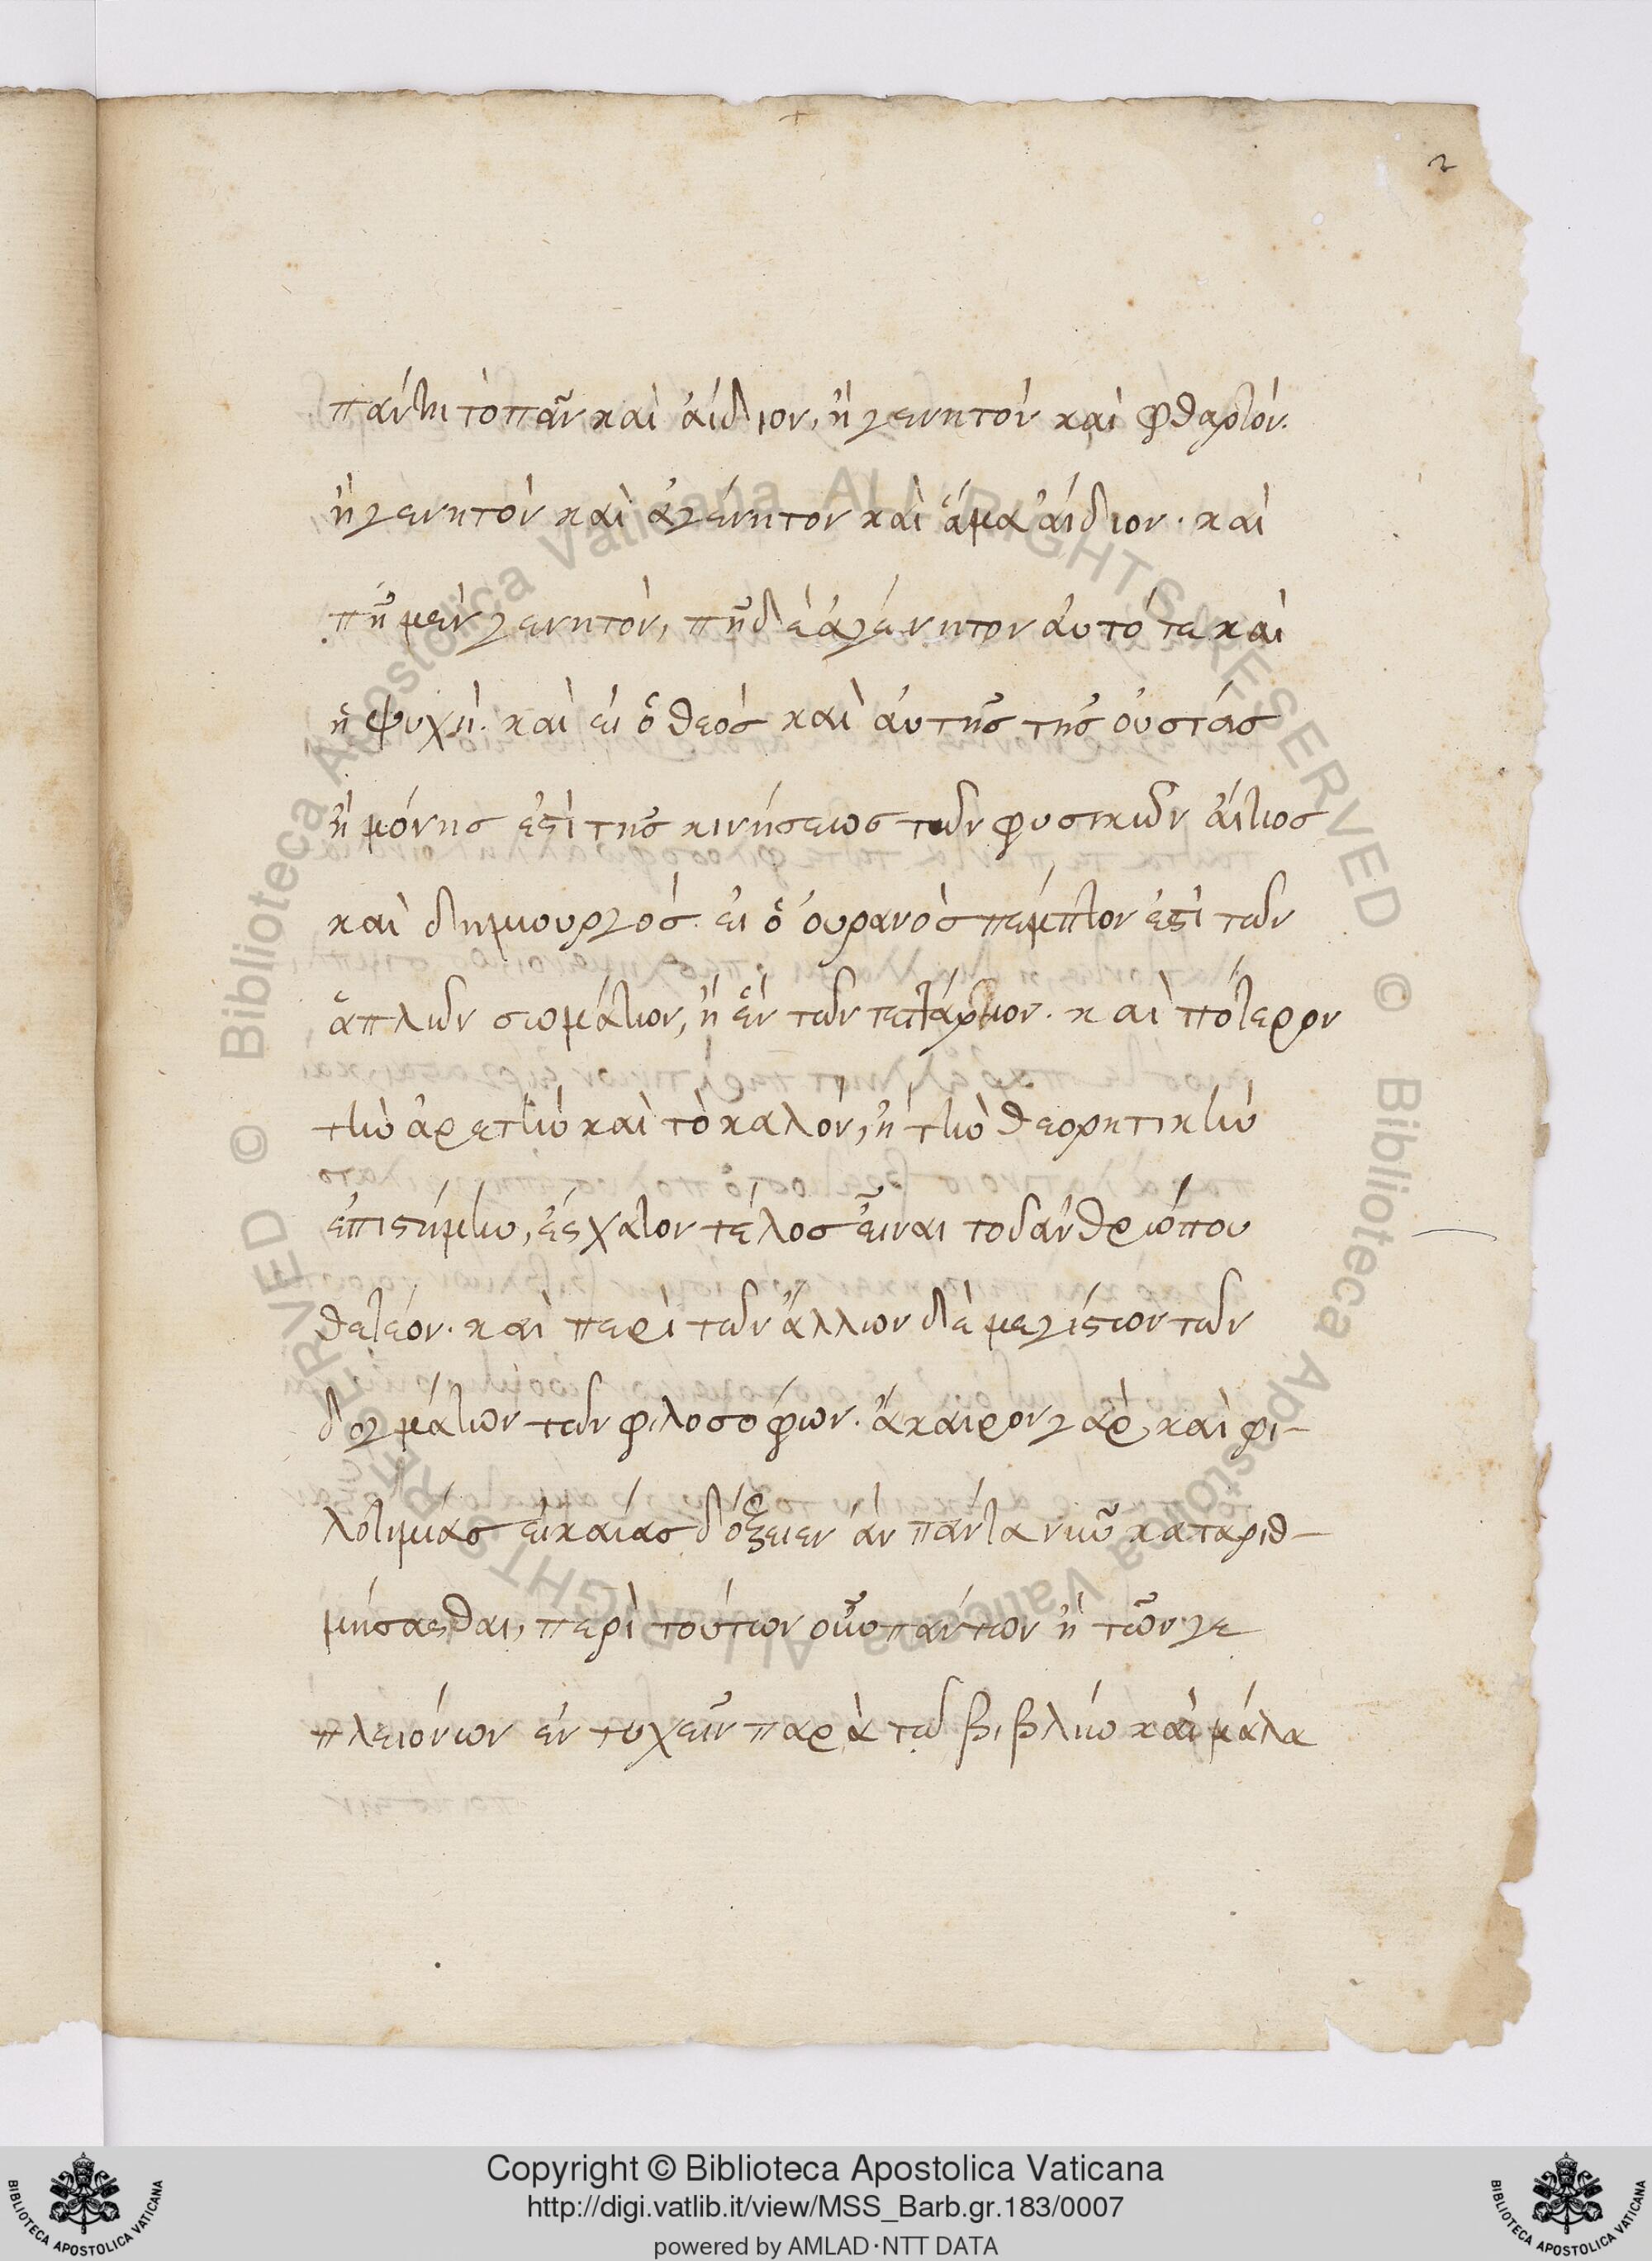 2
πάντη τὸ πᾶν καὶ ἀίδιον, ἢ γενητὸν καὶ φθαρτόν.
ἢ γενητὸν καὶ ἀγένητον καὶ ἅμα ἀίδιον· καὶ
πῆ μὲν γενητὸν, πῆ δὲ ἀγένητον αὐτό τε καὶ
ἡ ψυχή· καὶ εἰ ὁ θεὸς καὶ αὐτῆς τῆς οὐσίας
ἢ μόνης ἐστὶ τῆς κινήσεως τῶν φυσικῶν αἴτιος
καὶ δημιουργός· εἰ ὁ οὐρανὸς πέμπτον ἐστὶ τῶν
ἁπλῶν σωμάτων, ἢ ἓν τῶν τεττάρων· καὶ πότερον
τὴν ἀρετὴν καὶ τὸ καλὸν, ἢ τὴν θεορητικὴν
ἐπιστήμην, ἔσχατον τέλος εἶναι τοῦ ἀνθρώπου
θετέον· καὶ περὶ τῶν ἄλλων δὲ μεγίστων τῶν
δογμάτων τῶν φιλοσόφων· ἄκαιρον γὰρ καὶ φι-
λοτιμίας εἰκαίας δόξειεν ἂν πάντα νῦν καταριθ-
μήσασθαι, περὶ τούτων οὖν πάντων ἢ τῶν γε
πλειόνων ἐν τυχεῖν παρὰ τῷ βιβλίῳ καὶ μάλα
Copyright © Biblioteca Apostolica Vaticana
http://digi.vatlib.it/view/MSS_Barb.gr.183/0007
powered by AMLAD·NTT DATA
BIBLIOTECA APOSTOLICA VATICANA
BIBLIOTECA APOSTOLICA VATICANA
© Biblioteca Apostolica Vaticana ALL RIGHTS RESERVED © Biblioteca Apostolica Vaticana ALL RIGHTS RESERVED